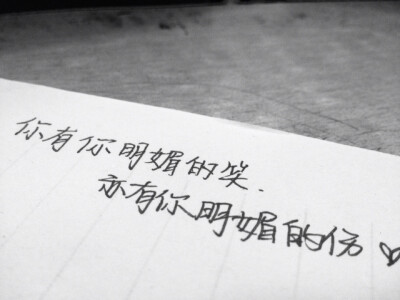 你有你明媚的笑.
亦有你明媚的伤